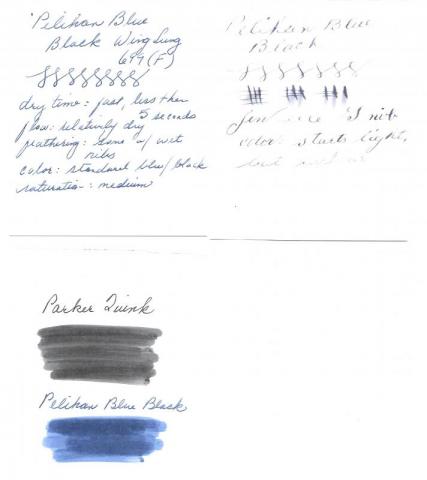 Pelikan Blue
Black Wing Sung
699 (F)
dry time: fast, less than
5 seconds
flow: relatively dry
feathering: some w/ wet
nibs
color: standard blue/black
saturation: medium
Pelikan Blue
Black
nib
color: starts light,
but
Parker Quink
Pelikan Blue Black